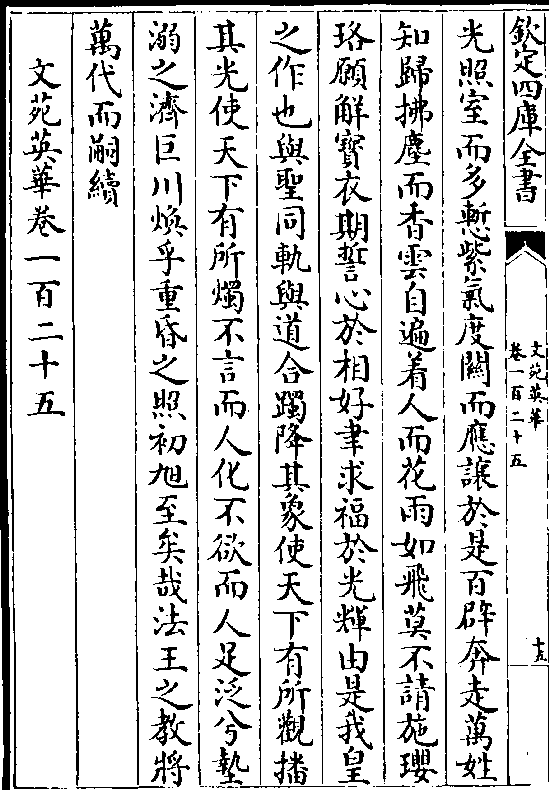 欽定四庫全書
文苑英華
卷一百二十五
十五
光照室而多慙紫氣度關而應讓於是百辟奔走萬姓
知歸拂塵而香雲自遍着人而花雨如飛莫不請施瓔
珞願解寶衣期誓心於相好聿求福於光輝由是我皇
之作也與聖同軌與道合躅降其象使天下有所觀播
其光使天下有所燭不言而人化不欲而人足泛兮墊
溺之濟巨川煥乎重昏之照初旭至矣哉法王之教將
萬代而嗣續
文苑英華卷一百二十五